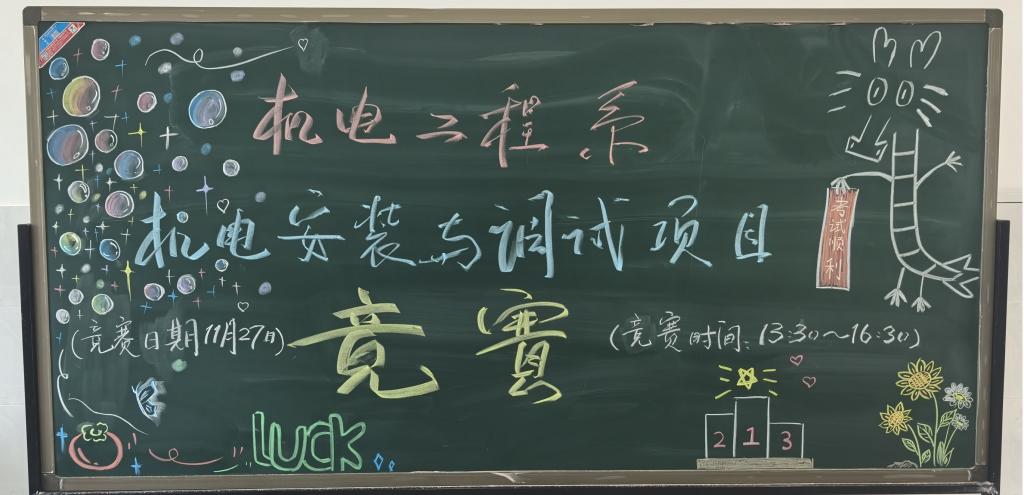 机电工程系
机电安装与调试项目
竞赛
(竞赛日期11月27日)
(竞赛时间:13:30~16:30)
考试顺利
LUCK
2 1 3